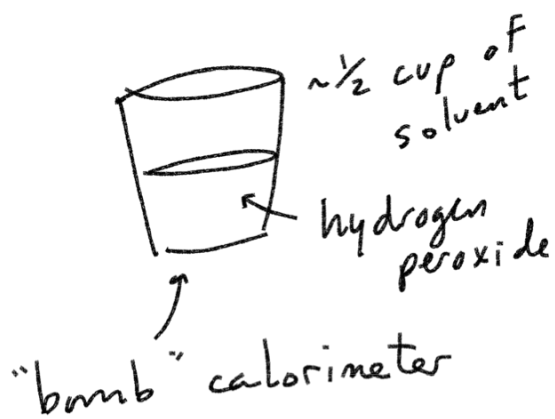 ~½ cup of
solvent
hydrogen
peroxide
"bomb" calorimeter